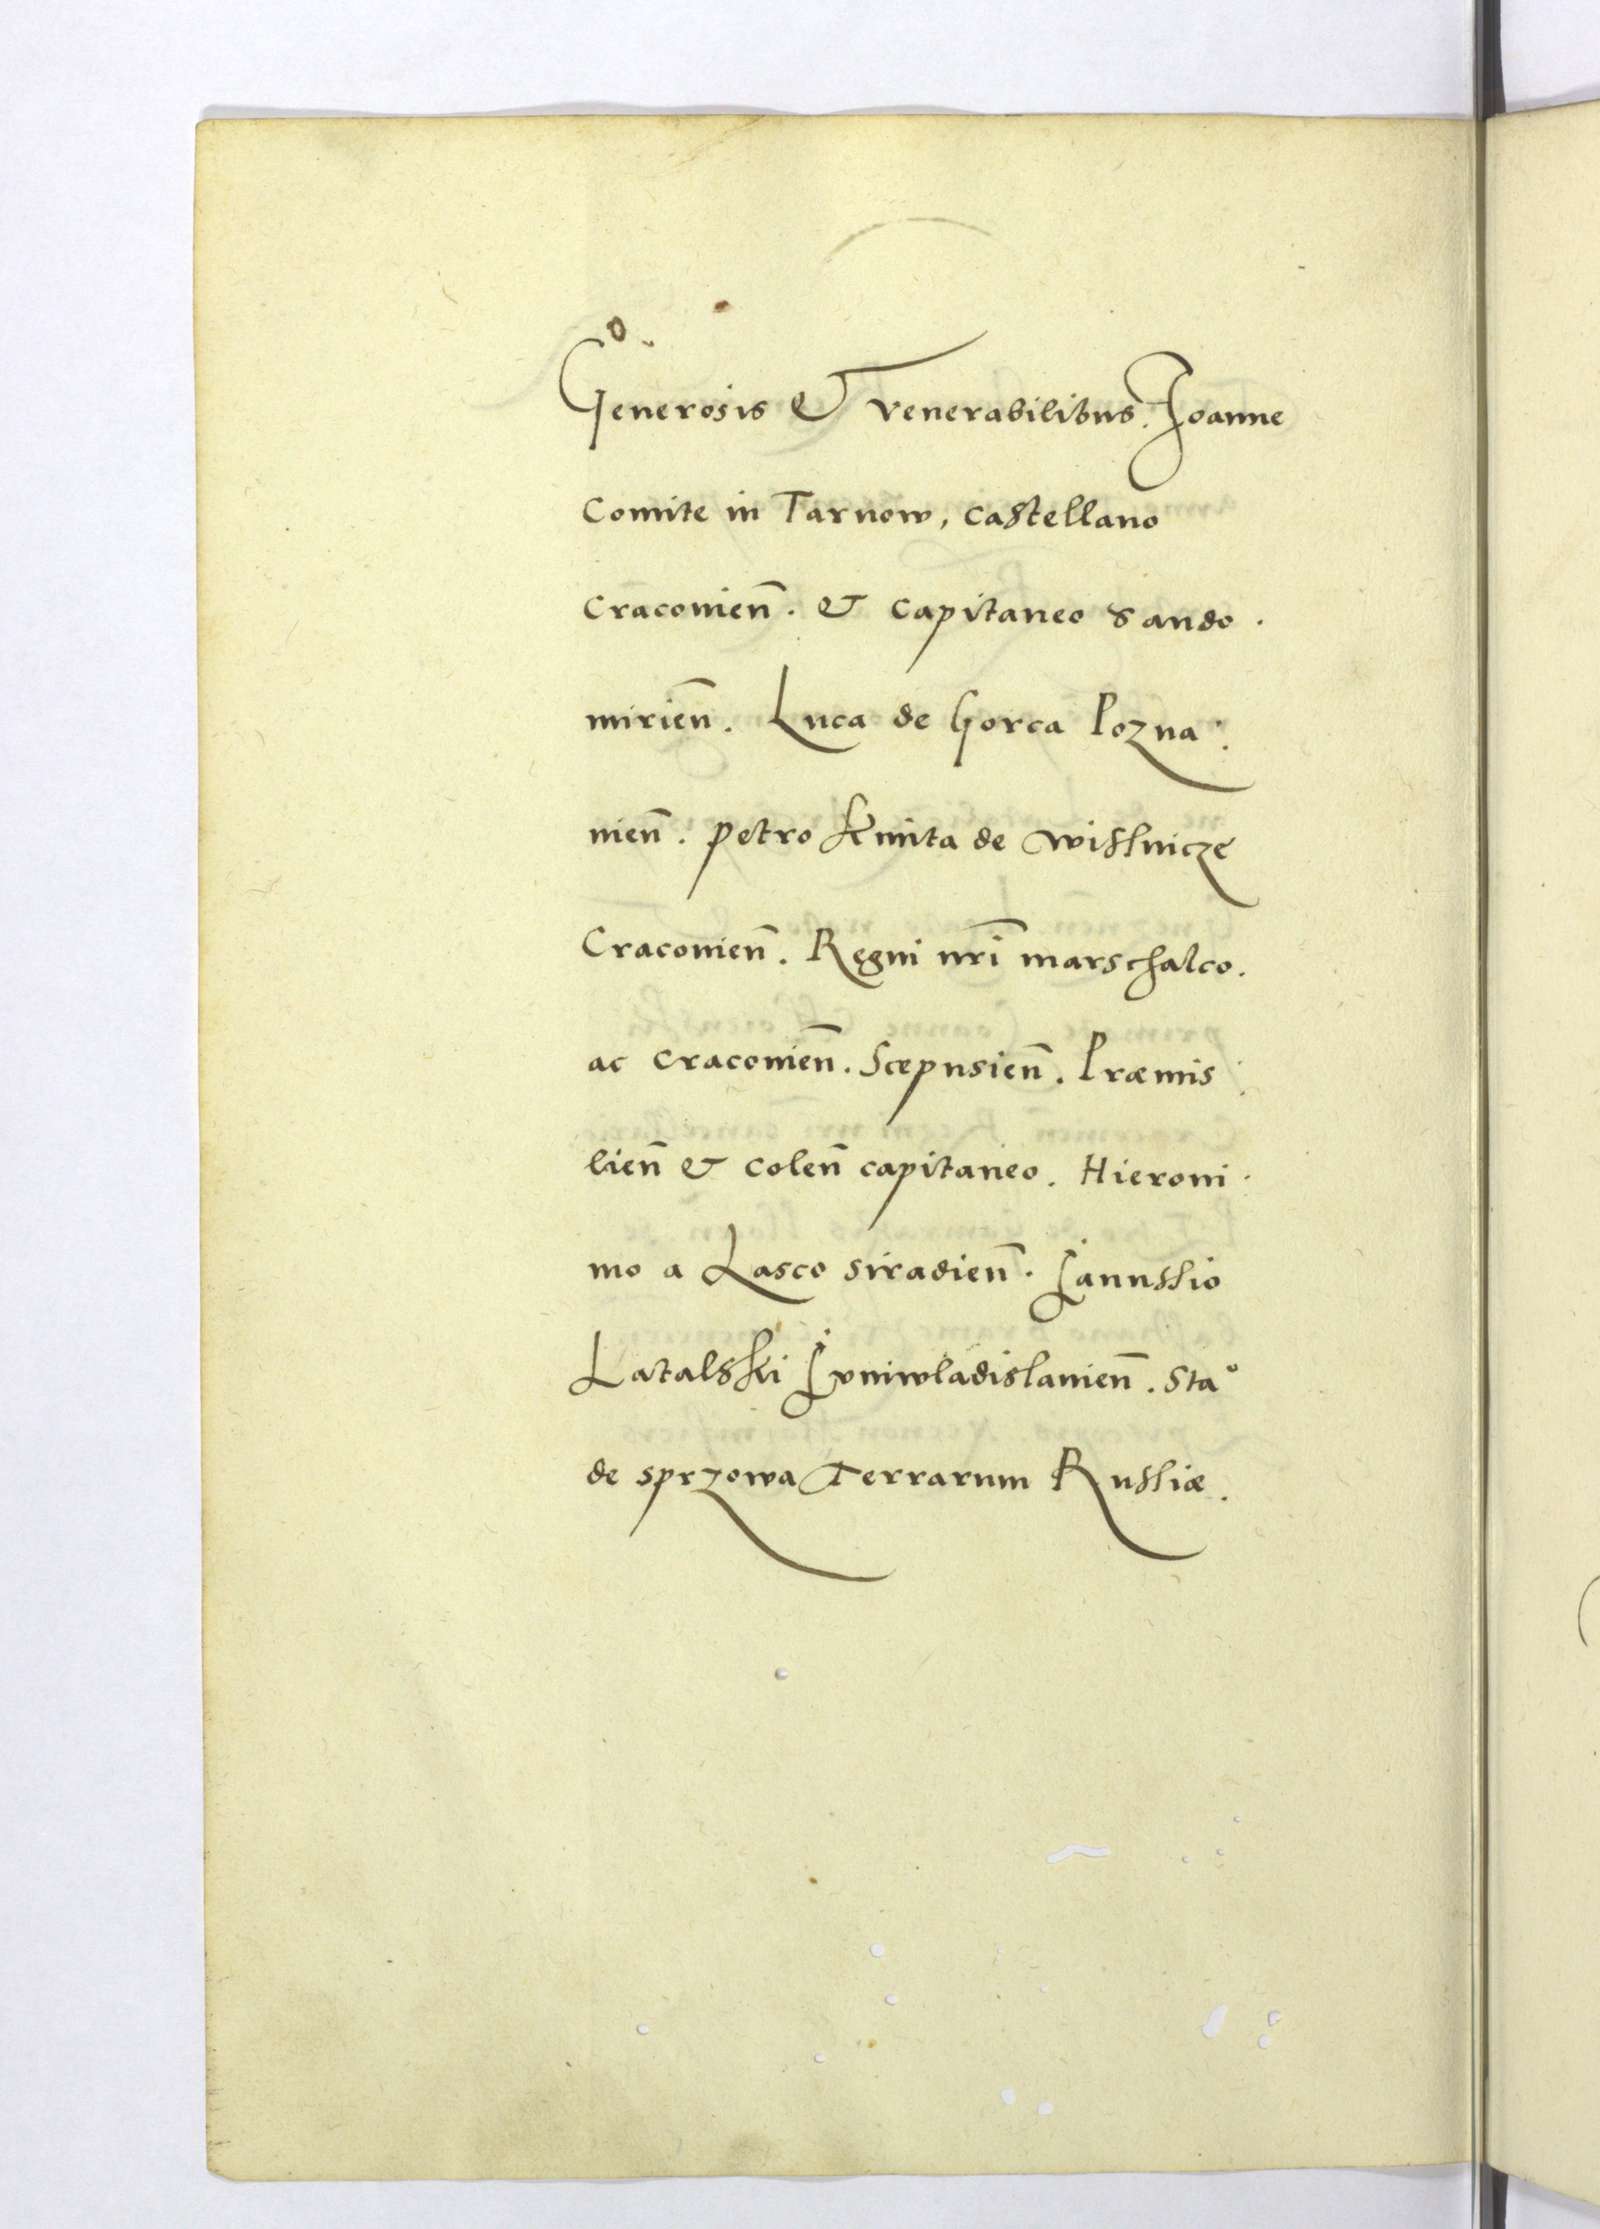 Generosis & venerabilibus. Joanne
Comite in Tarnow, castellano
Cracovien̄. & capitaneo Sando.
mirien̄. Luca de Gorca Pozna:
nien̄. Petro Kmita de Wislnicze
Cracovien̄. Regni nr̄i marschalco.
ac Cracovien̄. Scepusien̄. Præmis:
lien̄ & Colen̄ capitaneo. Hieroni.
mo a Lasco Siradien̄. Janussio
Latalski Juniwladislavien̄. Sta°
de Sprzowa Terrarum Russiæ.